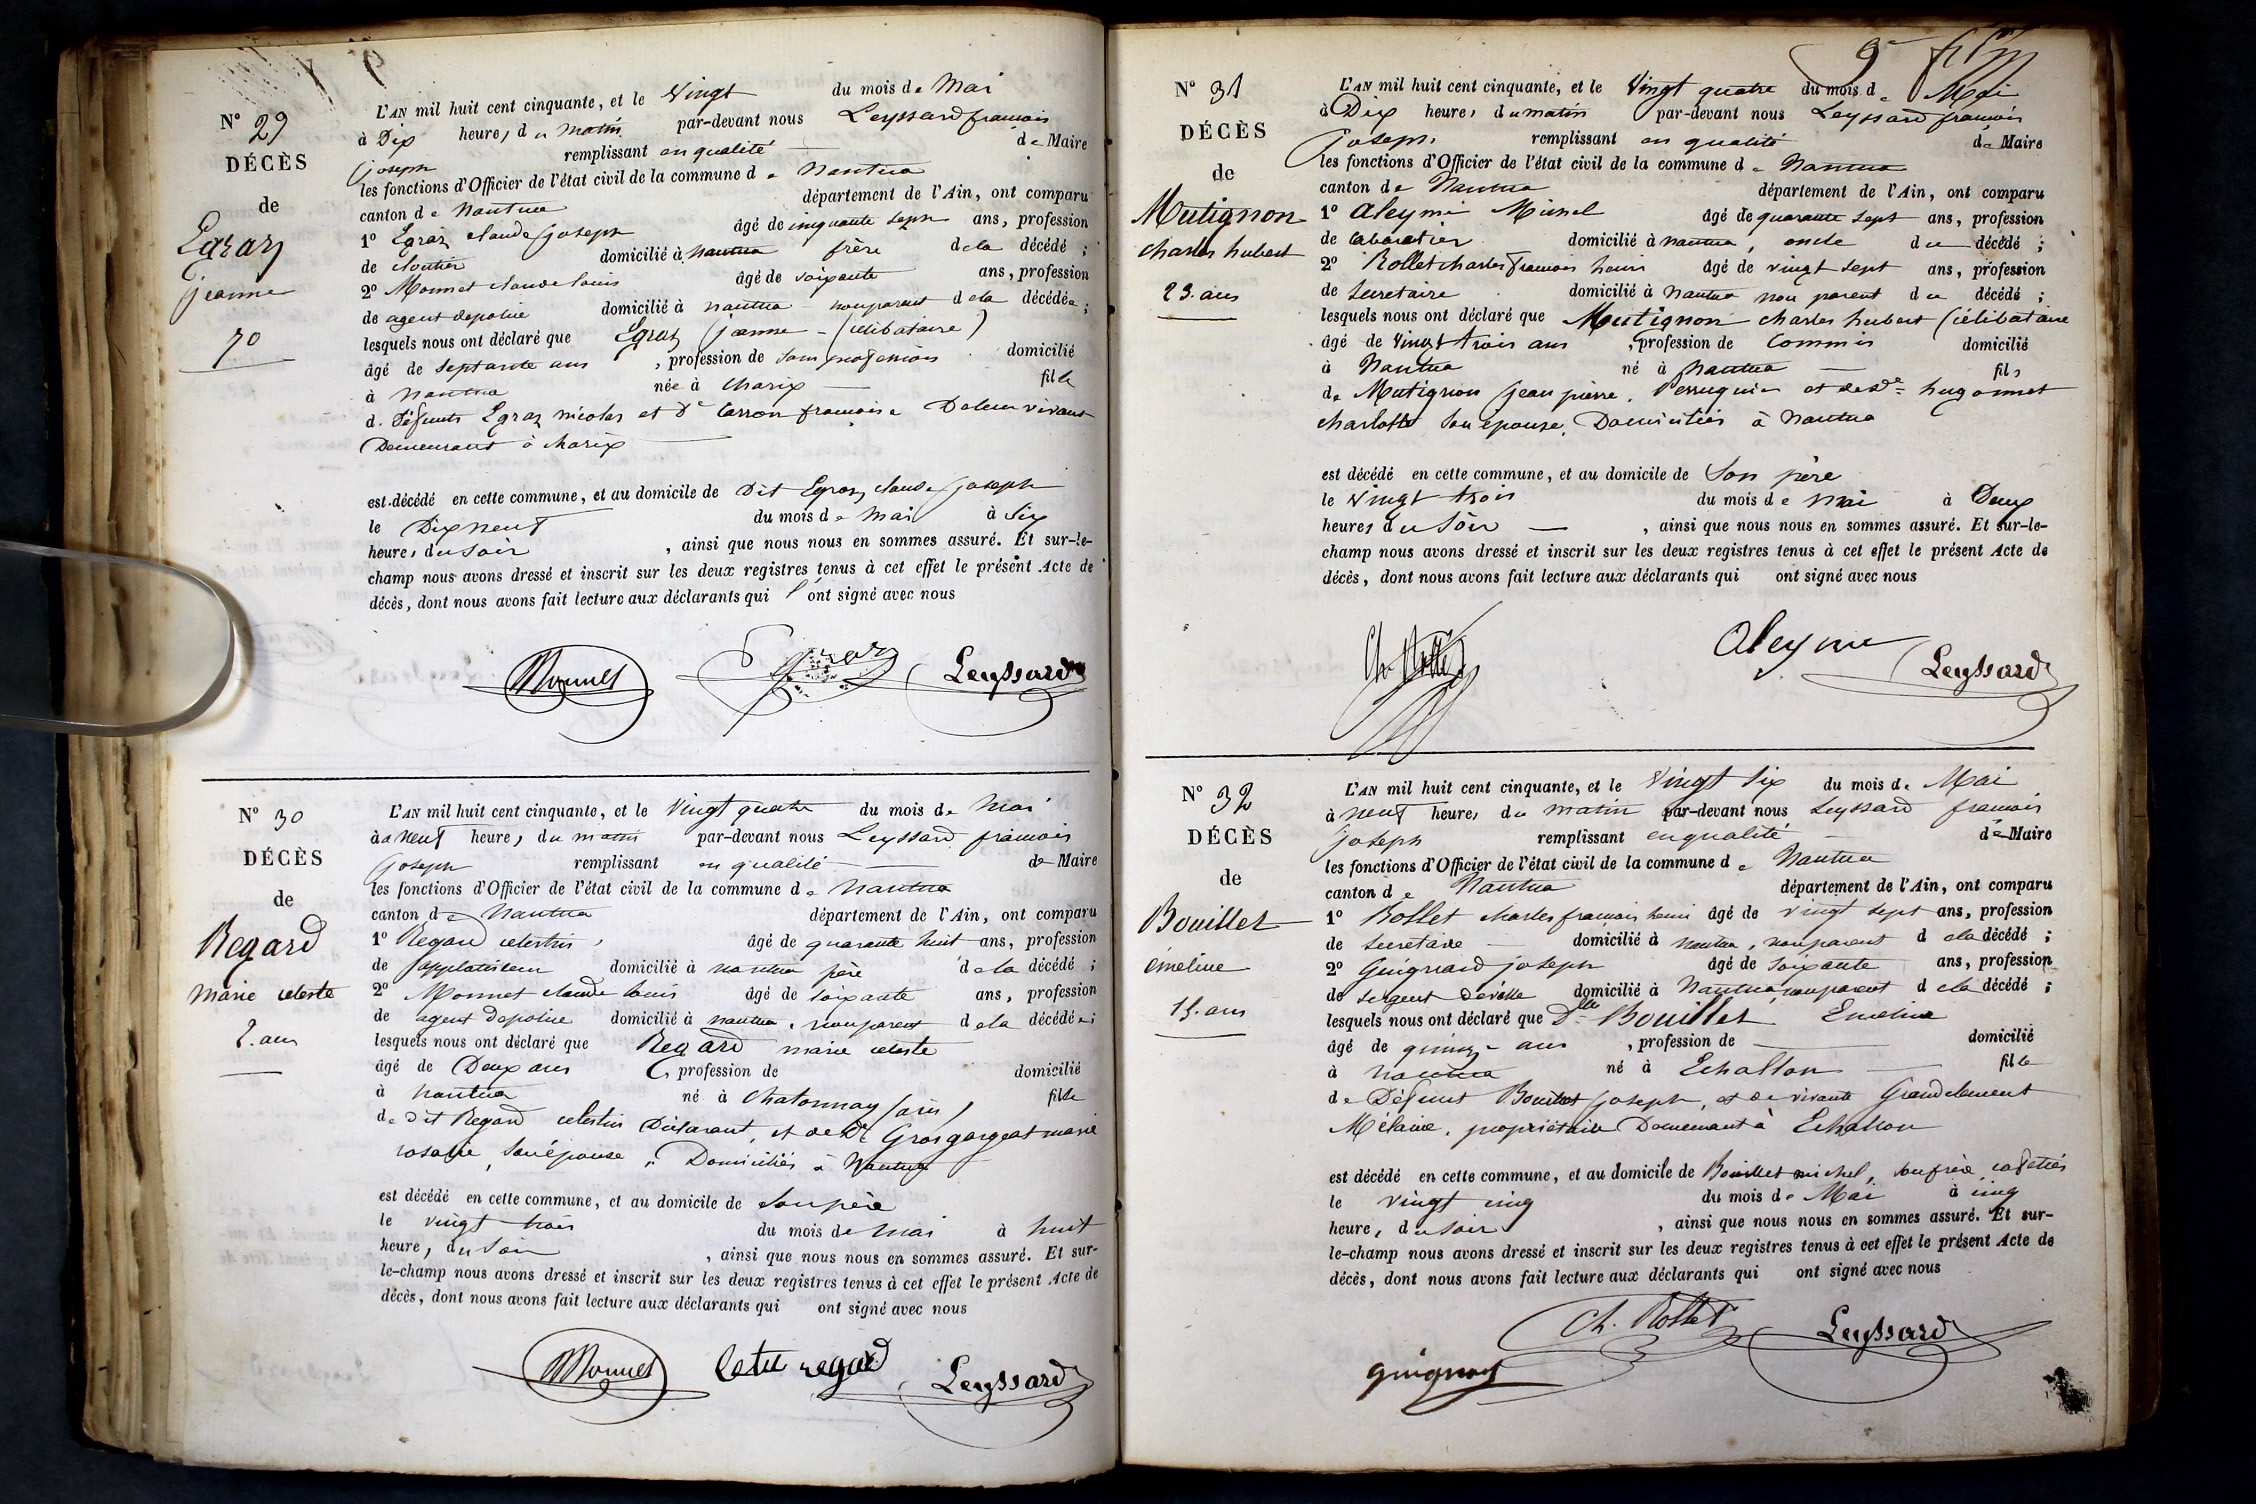 N° 29
DÉCÈS
de
Egraz
jeanne
70
L'AN mil huit cent cinquante, et le Vingt du mois de Mai
à Dix heures du matin par-devant nous Leyssard françois
joseph remplissant en qualité de Maire
les fonctions d'Officier de l'état civil de la commune de Nantua
canton de Nantua département de l'Ain, ont comparu
1° Egraz claude joseph âgé de cinquante sept ans, profession
de cloutier domicilié à nantua frère de la décédé ;
2° Monnet claude louis âgé de soixante ans, profession
de agent de police domicilié à nantua non parent de la décédée ;
lesquels nous ont déclaré que Egraz jeanne - (célibataire)
âgé de septante ans , profession de sans profession domicilié
à nantua née à charix fille
d. Défunts Egraz nicolas et de Carron françoise De leur vivant
Demeurant à charix
est décédé en cette commune, et au domicile de Dit Egraz claude joseph
le Dix neuf du mois de Mai à Six
heures du soir , ainsi que nous nous en sommes assuré. Et sur-le-
champ nous avons dressé et inscrit sur les deux registres tenus à cet effet le présent Acte de
décès, dont nous avons fait lecture aux déclarants qui l'ont signé avec nous
Monnet Egraz Leyssard
N° 30
DÉCÈS
de
Regard
Marie celeste
2. ans
L'AN mil huit cent cinquante, et le Vingt quatre du mois de Mai
à neuf heures du matin par-devant nous Leyssard françois
joseph remplissant en qualité de Maire
les fonctions d'Officier de l'état civil de la commune de Nantua
canton de Nantua département de l'Ain, ont comparu
1° Regard celestin, âgé de quarante huit ans, profession
de domicilié à nantua père de la décédé ;
2° Monnet claude louis âgé de soixante ans, profession
de agent de police domicilié à nantua, non parent de la décédée ;
lesquels nous ont déclaré que Regard marie celeste
âgé de Deux ans , profession de domicilié
à nantua né à Chatonnay fille
de dit Regard celestin Déclarant, et de De Grosgorgeat marie
rosalie, son épouse, Domiciliés à Nantua
est décédé en cette commune, et au domicile de son père
le vingt trois du mois de Mai à huit
heures du soir , ainsi que nous nous en sommes assuré. Et sur-
le-champ nous avons dressé et inscrit sur les deux registres tenus à cet effet le présent Acte de
décès, dont nous avons fait lecture aux déclarants qui ont signé avec nous
Monnet regard Leyssard
N° 31
DÉCÈS
de
Mutignon
charles hubert
23. ans
L'AN mil huit cent cinquante, et le Vingt quatre du mois de Mai
à Dix heures du matin par-devant nous Leyssard françois
joseph remplissant en qualité de Maire
les fonctions d'Officier de l'état civil de la commune de Nantua
canton de Nantua département de l'Ain, ont comparu
1° aleyme Michel âgé de quarante sept ans, profession
de Cabaretier domicilié à nantua, oncle du décédé ;
2° Rollet charles françois henri âgé de vingt sept ans, profession
de Secretaire domicilié à Nantua non parent du décédé ;
lesquels nous ont déclaré que Mutignon charles hubert (célibataire
âgé de vingt trois ans , profession de Commis domicilié
à Nantua né à Nantua fils
de Mutignon jean pierre, Perruquier et de De hugonnet
charlotte son épouse, Domiciliés à Nantua
est décédé en cette commune, et au domicile de Son père
le vingt trois du mois de Mai à Deux
heures du soir , ainsi que nous nous en sommes assuré. Et sur-le-
champ nous avons dressé et inscrit sur les deux registres tenus à cet effet le présent Acte de
décès, dont nous avons fait lecture aux déclarants qui ont signé avec nous
Ch. Rollet aleyme Leyssard
N° 32
DÉCÈS
de
Bouillet
émeline
15. ans
L'AN mil huit cent cinquante, et le Vingt six du mois de Mai
à neuf heures du matin par-devant nous Leyssard françois
joseph remplissant en qualité de Maire
les fonctions d'Officier de l'état civil de la commune de Nantua
canton de Nantua département de l'Ain, ont comparu
1° Rollet charles françois henri âgé de vingt sept ans, profession
de Secretaire domicilié à nantua, non parent de la décédé ;
2° Guignard joseph âgé de Soixante ans, profession
de Sergent de ville domicilié à Nantua, non parent de la décédé ;
lesquels nous ont déclaré que Dlle Bouillet Emeline
âgé de quinze ans , profession de domicilié
à nantua né à Echallon fille
de Défunt Bouillet joseph, et de vivante Grandclement
Mélanie, propriétaire Demeurant à Echallon
est décédé en cette commune, et au domicile de Bouillet michel, son frère, cafetier
le vingt cinq du mois de Mai à cinq
heures du soir , ainsi que nous nous en sommes assuré. Et sur-
le-champ nous avons dressé et inscrit sur les deux registres tenus à cet effet le présent Acte de
décès, dont nous avons fait lecture aux déclarants qui ont signé avec nous
Ch. Rollet Leyssard
guignard